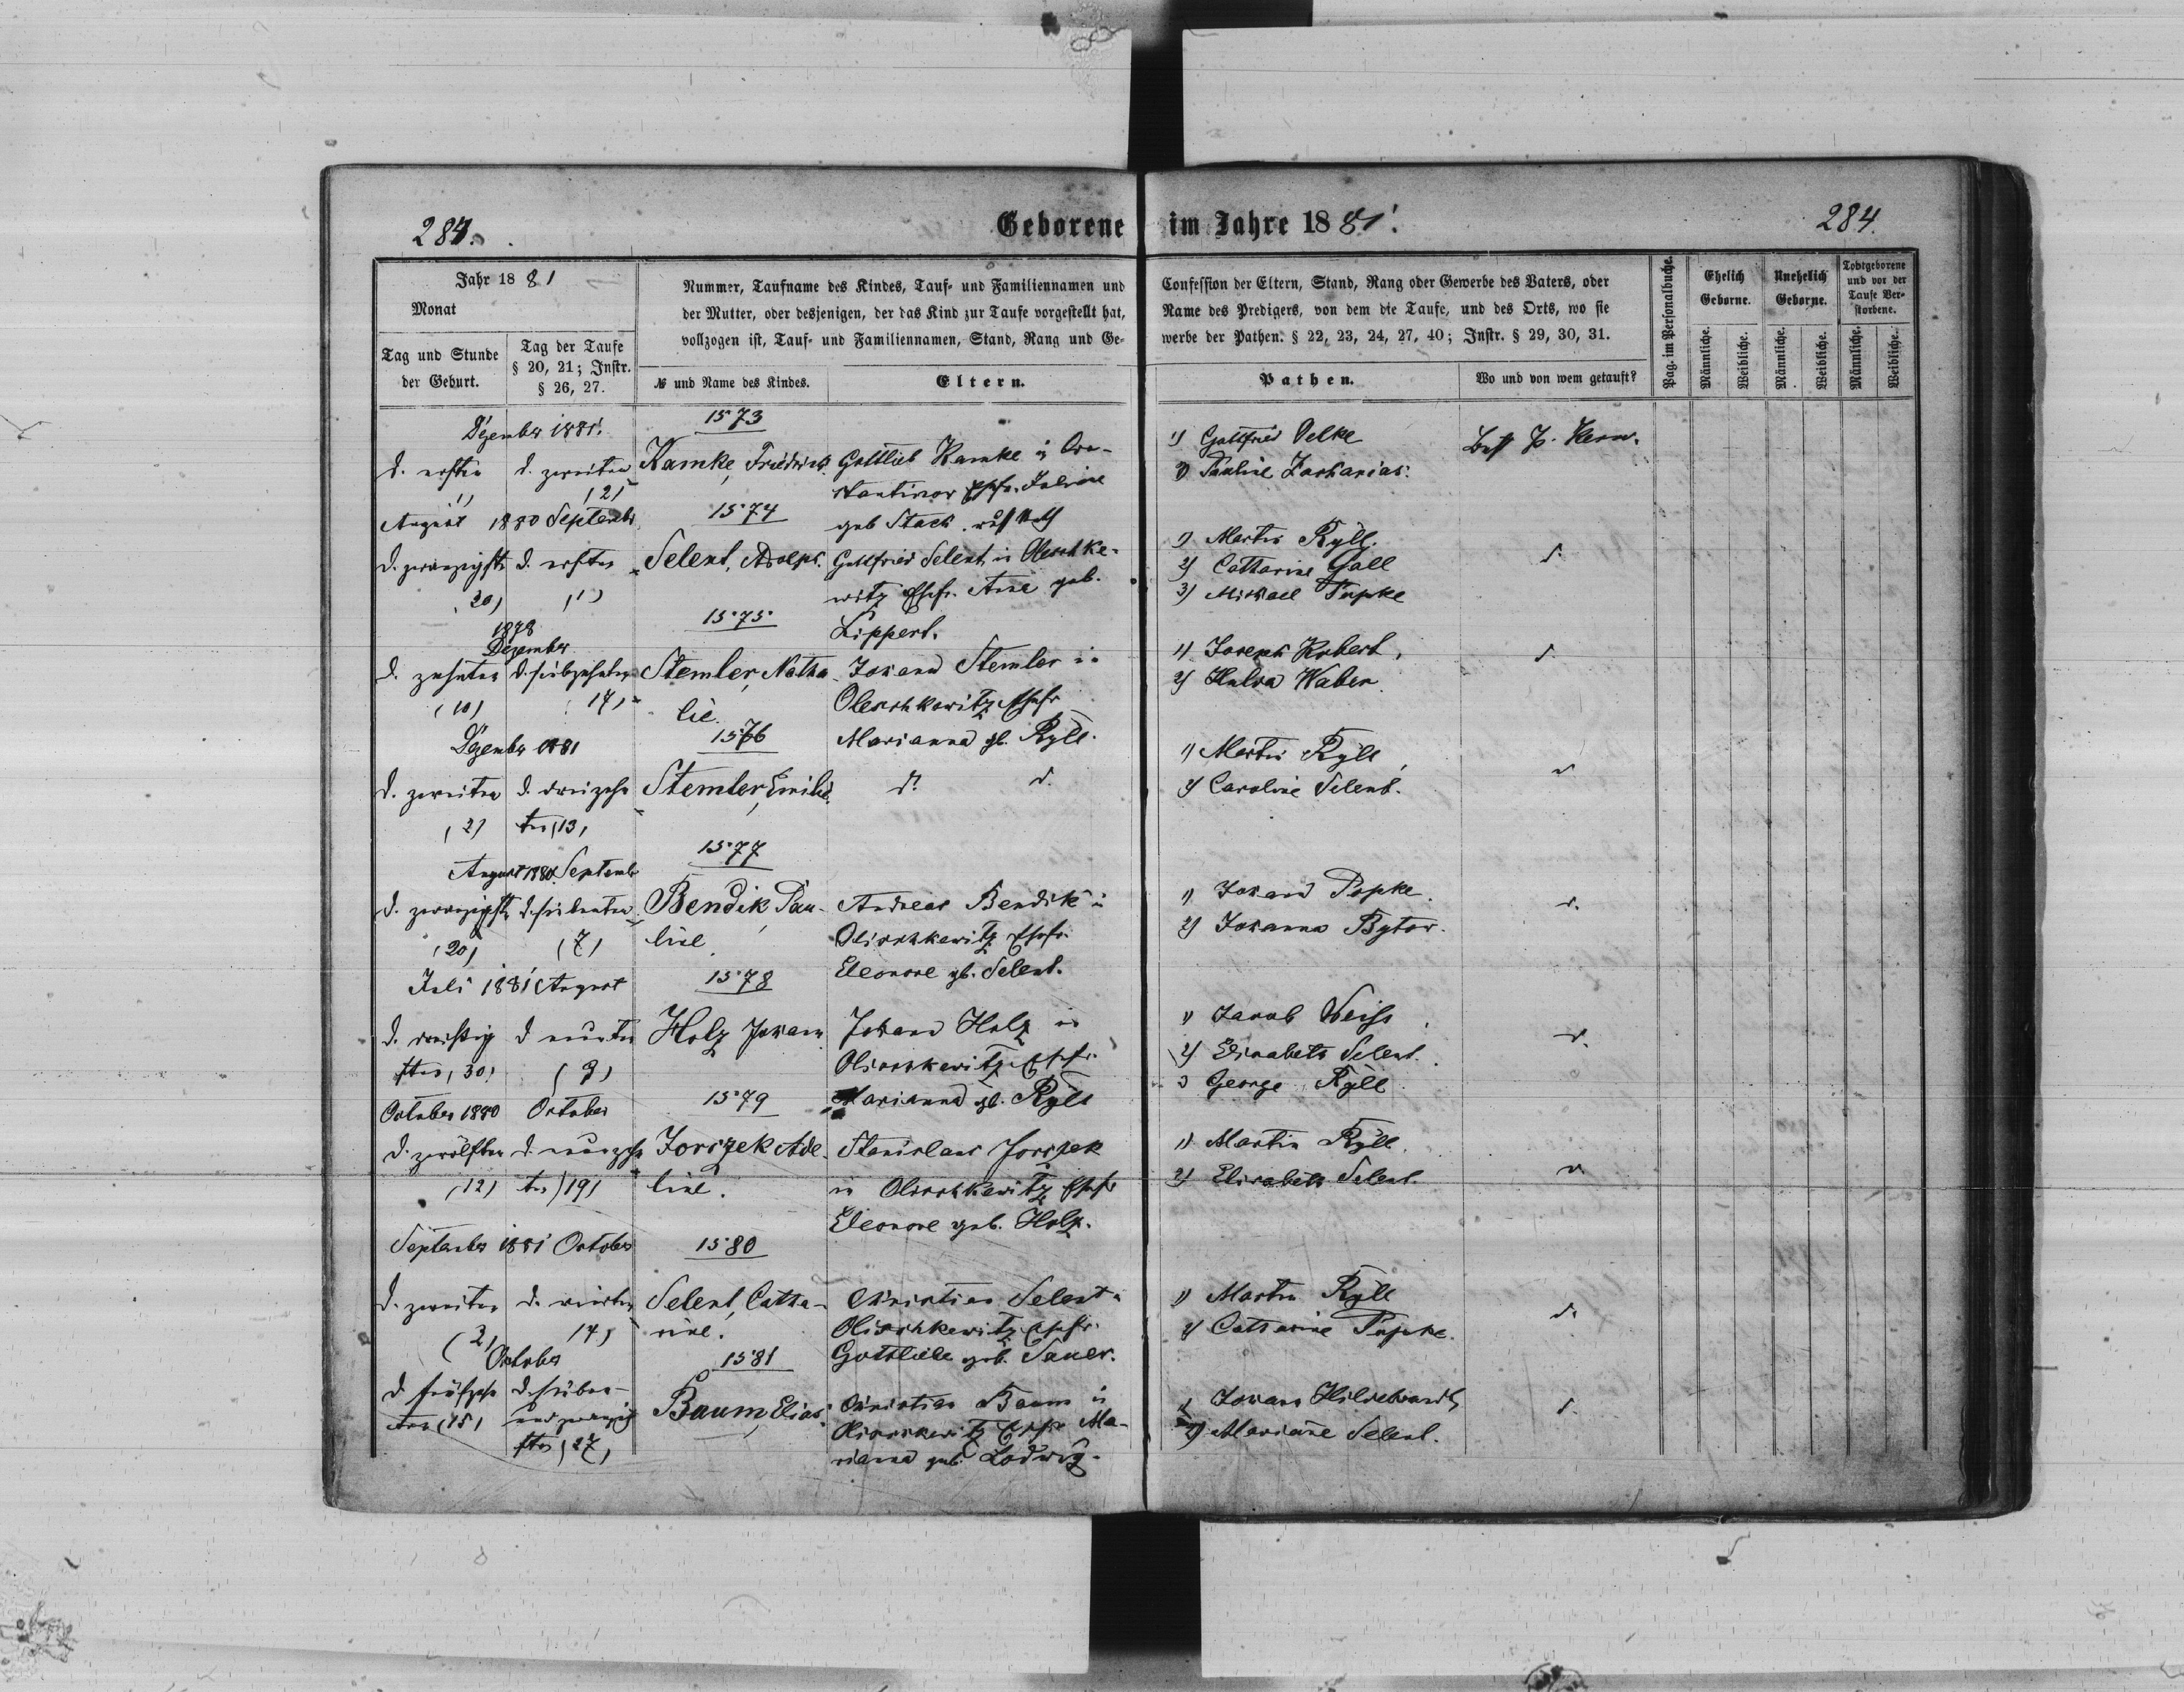 284.
Geborene im Jahre 1881.
284.
Jahr 1881
Monat
Tag und Stunde
der Geburt.
Tag der Taufe
§ 20, 21; Instr.
§ 26, 27.
Nummer, Taufname des Kindes, Tauf- und Familiennamen und
der Mutter, oder desjenigen, der das Kind zur Taufe vorgestellt hat,
vollzogen ist, Tauf- und Familiennamen, Stand, Rang und Ge-
№ und Name des Kindes.
Eltern.
Confession der Eltern, Stand, Rang oder Gewerbe des Vaters, oder
Name des Predigers, von dem die Taufe, und des Orts, wo sie
werbe der Pathen. § 22, 23, 24, 27, 40; Instr. § 29, 30, 31.
Pathen.
Wo und von wem getauft?
Pag. im Personalbuche.
Ehelich
Geborne.
Unehelich
Geborne.
Todtgeborene
und vor der
Taufe Ver-
storbene.
Männliche.
Weibliche.
Männliche.
Weibliche.
Männliche.
Weibliche.
Dezember 1881.
1573
d. ersten
1)
d. zweiten
(2)
Kamke, Friedrich
Gottlieb Kamke in
Ehefr. Juliane
geb. Stach
1) Gottfried Oelke
2) Pauline Zacharias.
August 1880 Septemb.
1574
d. zwanzigst.
20)
d. ersten
(1)
Selent, Adolph.
Gottfried Selent in Oleschke-
witz Ehefr. Anne geb.
Lippert.
1) Martin Ryll.
2) Catharine Gall
3) Michael Papke
d.
1878
Dezember
1575
d. zehnten
(10)
d. siebzehnten
17)
Stemler, Natha-
lie.
Johann Stemler in
Oleschkewitz Ehefr.
Marianna gb. Ryll.
1) Joseph Robert,
2) Hulda Waber.
d.
Dezember 1881
1576
d. zweiten
(2)
d. dreizehn
ten (13)
Stemler, Emilie.
d. d.
1) Martin Ryll,
2) Caroline Selent.
d
August 1880. Septemb
1577
d. zwanzigst.
(20)
d. siebenten
(7)
Bendik Pau-
line
Andreas Bendik in
Olischkewitz Ehefr.
Eleonore gb. Selent.
1) Johann Papke.
2) Johanna Bytow.
d.
Juli 1881 August
1578
d. dreißig
sten (30)
d. neunten
(9)
Holz Johann
Johann Holz in
Olischkewitz Ehefr.
Marianna gb. Ryll
1) Jacob Weiss
2) Elisabeth Selent.
3 George Ryll
d.
October 1880 October
1579
d. zwölften
(12)
d. neunzehn
ten (19)
Jorszek Ade-
line.
Stanislaus Jorszek
in Olischkewitz Ehefr
Eleonore geb. Holz.
1) Martin Ryll.
2) Elisabeth Selent.
d
September 1881 October
1580
d. zweiten
(2)
d. vierten
14)
Selent, Catha-
rine.
Christian Selent in
Olischkewitz Ehefr.
Gottliebe geb. Sauer.
1) Martin Ryll
2) Catharine Papke.
d.
October
1581
d. fünfzehn
ten (15)
d. sieben-
und zwanzig
sten (27)
Baum, Elias.
Christian Baum in
Olischkewitz Ehefr. Ma-
rianna geb. Lodwig.
1) Johann Hildebrandt,
2) Marianne Selent.
d.